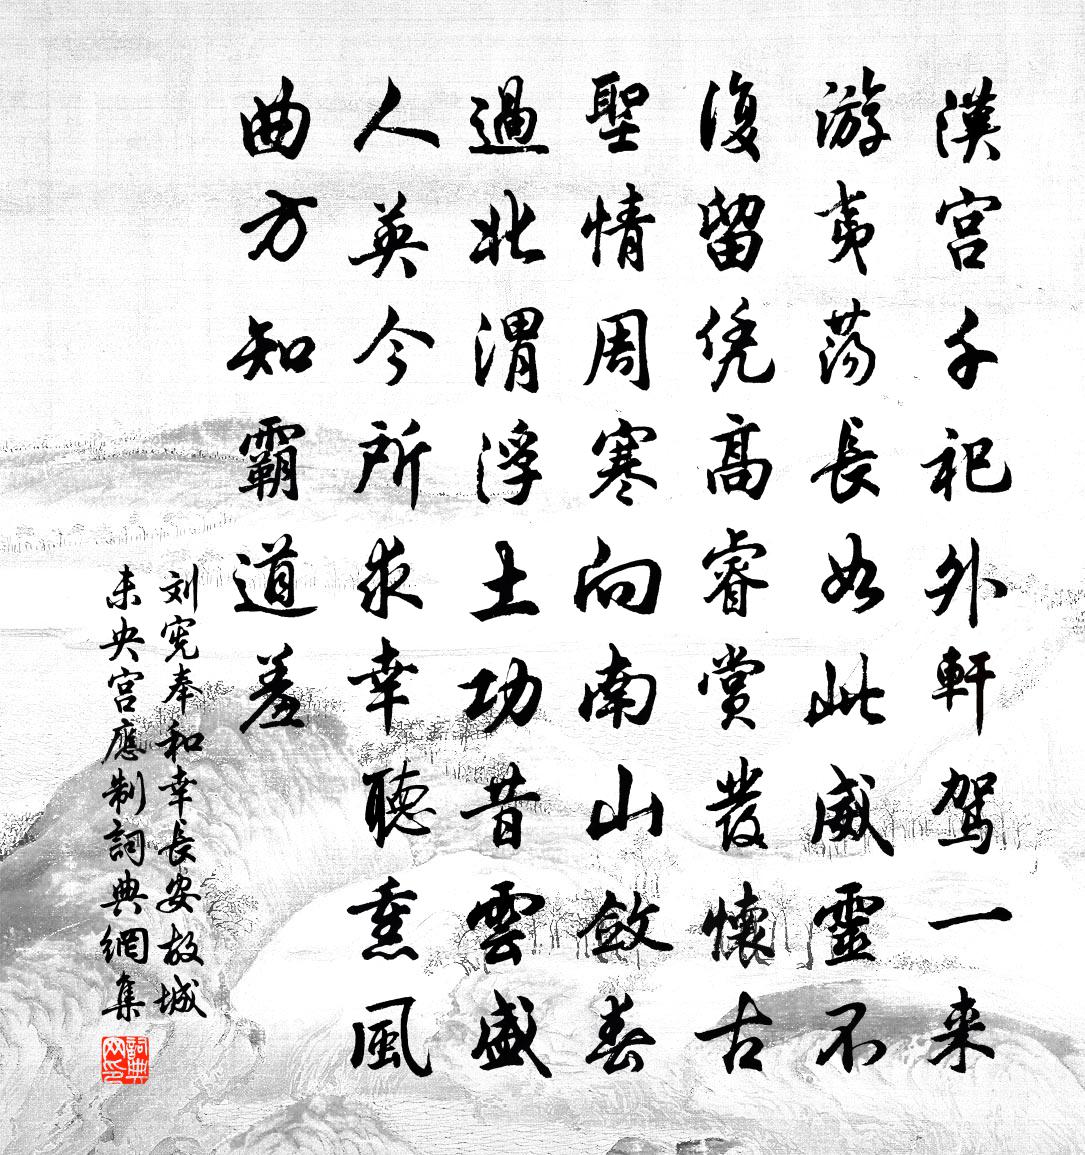 漢宮千祀外軒駕一来
游夷蕩長如此威靈不
復留凭高睿賞發懷古
聖情周寒向南山斂春
過北渭浮土功昔雲盛
人英今所求幸聽熏風
曲方知霸道羞
刘宪奉和幸長安故城
未央宮應制詞典網集
詞典
网印